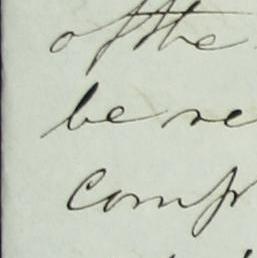 of the
be re
comp